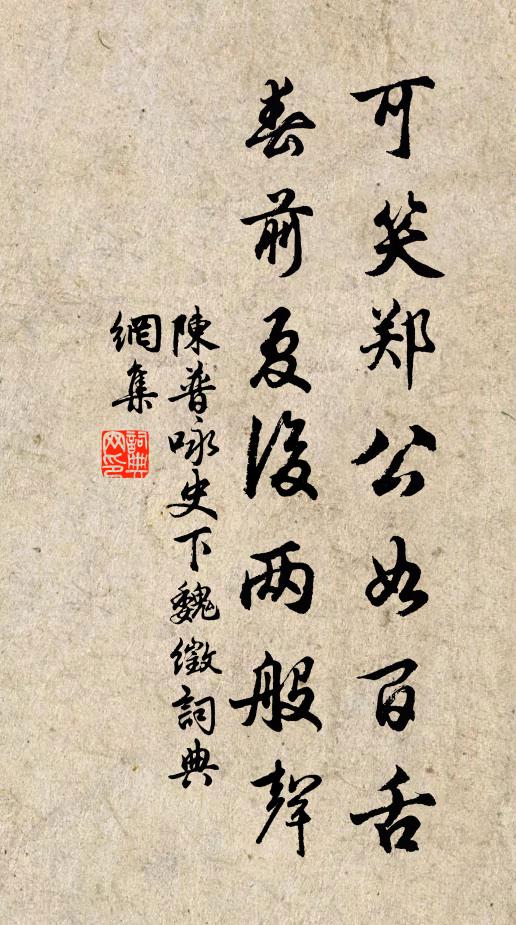 可笑郑公如百舌
春前夏後两般聲
陳普咏史下魏徵詞典
網集
詞典网印